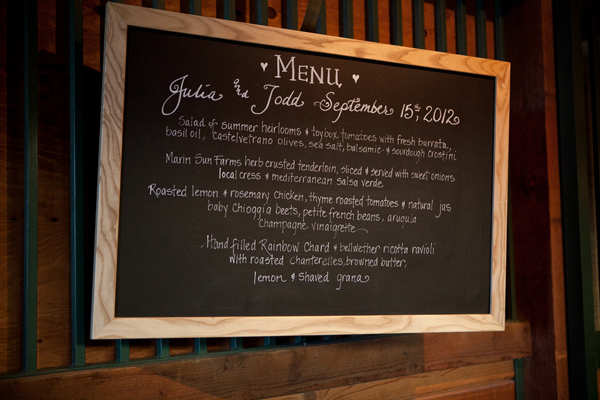 ♥ MENU ♥
Julia and Todd September 15st, 2012
Salad of summer heirlooms & toybox tomatoes with fresh burrata,
basil oil, castelvetrano olives, sea salt, balsamic & sourdough crostini
Marin Sun Farms herb crusted tenderloin, sliced & served with sweet onions
local cress & mediterranean salsa verde
Roasted lemon & rosemary chicken, thyme roasted tomatoes & natural jus
baby Chioggia beets, petite french beans, arugula
Champagne vinaigrette
Hand filled Rainbow Chard & bellwether ricotta ravioli
with roasted Chanterelles, browned butter,
lemon & shaved grana